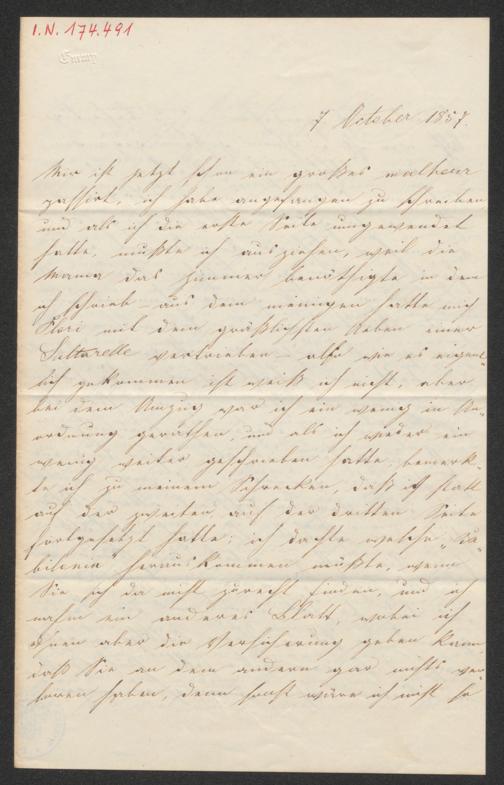 I.N. 174.491
Emmy
7 October 1857.
Mir ist jetzt schon ein großes malheur
passirt, ich habe angefangen zu schreiben
und als ich die erste Seite umgewendet
hatte, mußte ich ausziehen, weil die
Mama das Zimmer benöthigte in dem
ich schrieb – aus dem meinigen hatte mich
Flori mit dem gräßlichsten Ueben einer
Saltarelle vertrieben – also wie es eigent-
lich gekommen ist weiß ich nicht, aber
bei dem Umzug war ich ein wenig in Un-
ordnung gerathen, und als ich wieder ein
wenig weiter geschrieben hatte, bemerk-
te ich zu meinem Schrecken, daß ich statt
auf der zweiten auf der dritten Seite
fortgesetzt hatte; ich dachte welche
herauskommen müßte, wenn
Sie sich da nicht zurecht finden, und ich
nahm ein anderes Blatt, wobei ich
Ihnen aber die Versicherung geben kann,
daß Sie an dem andern gar nichts ver-
loren haben, denn sonst wäre ich nicht so